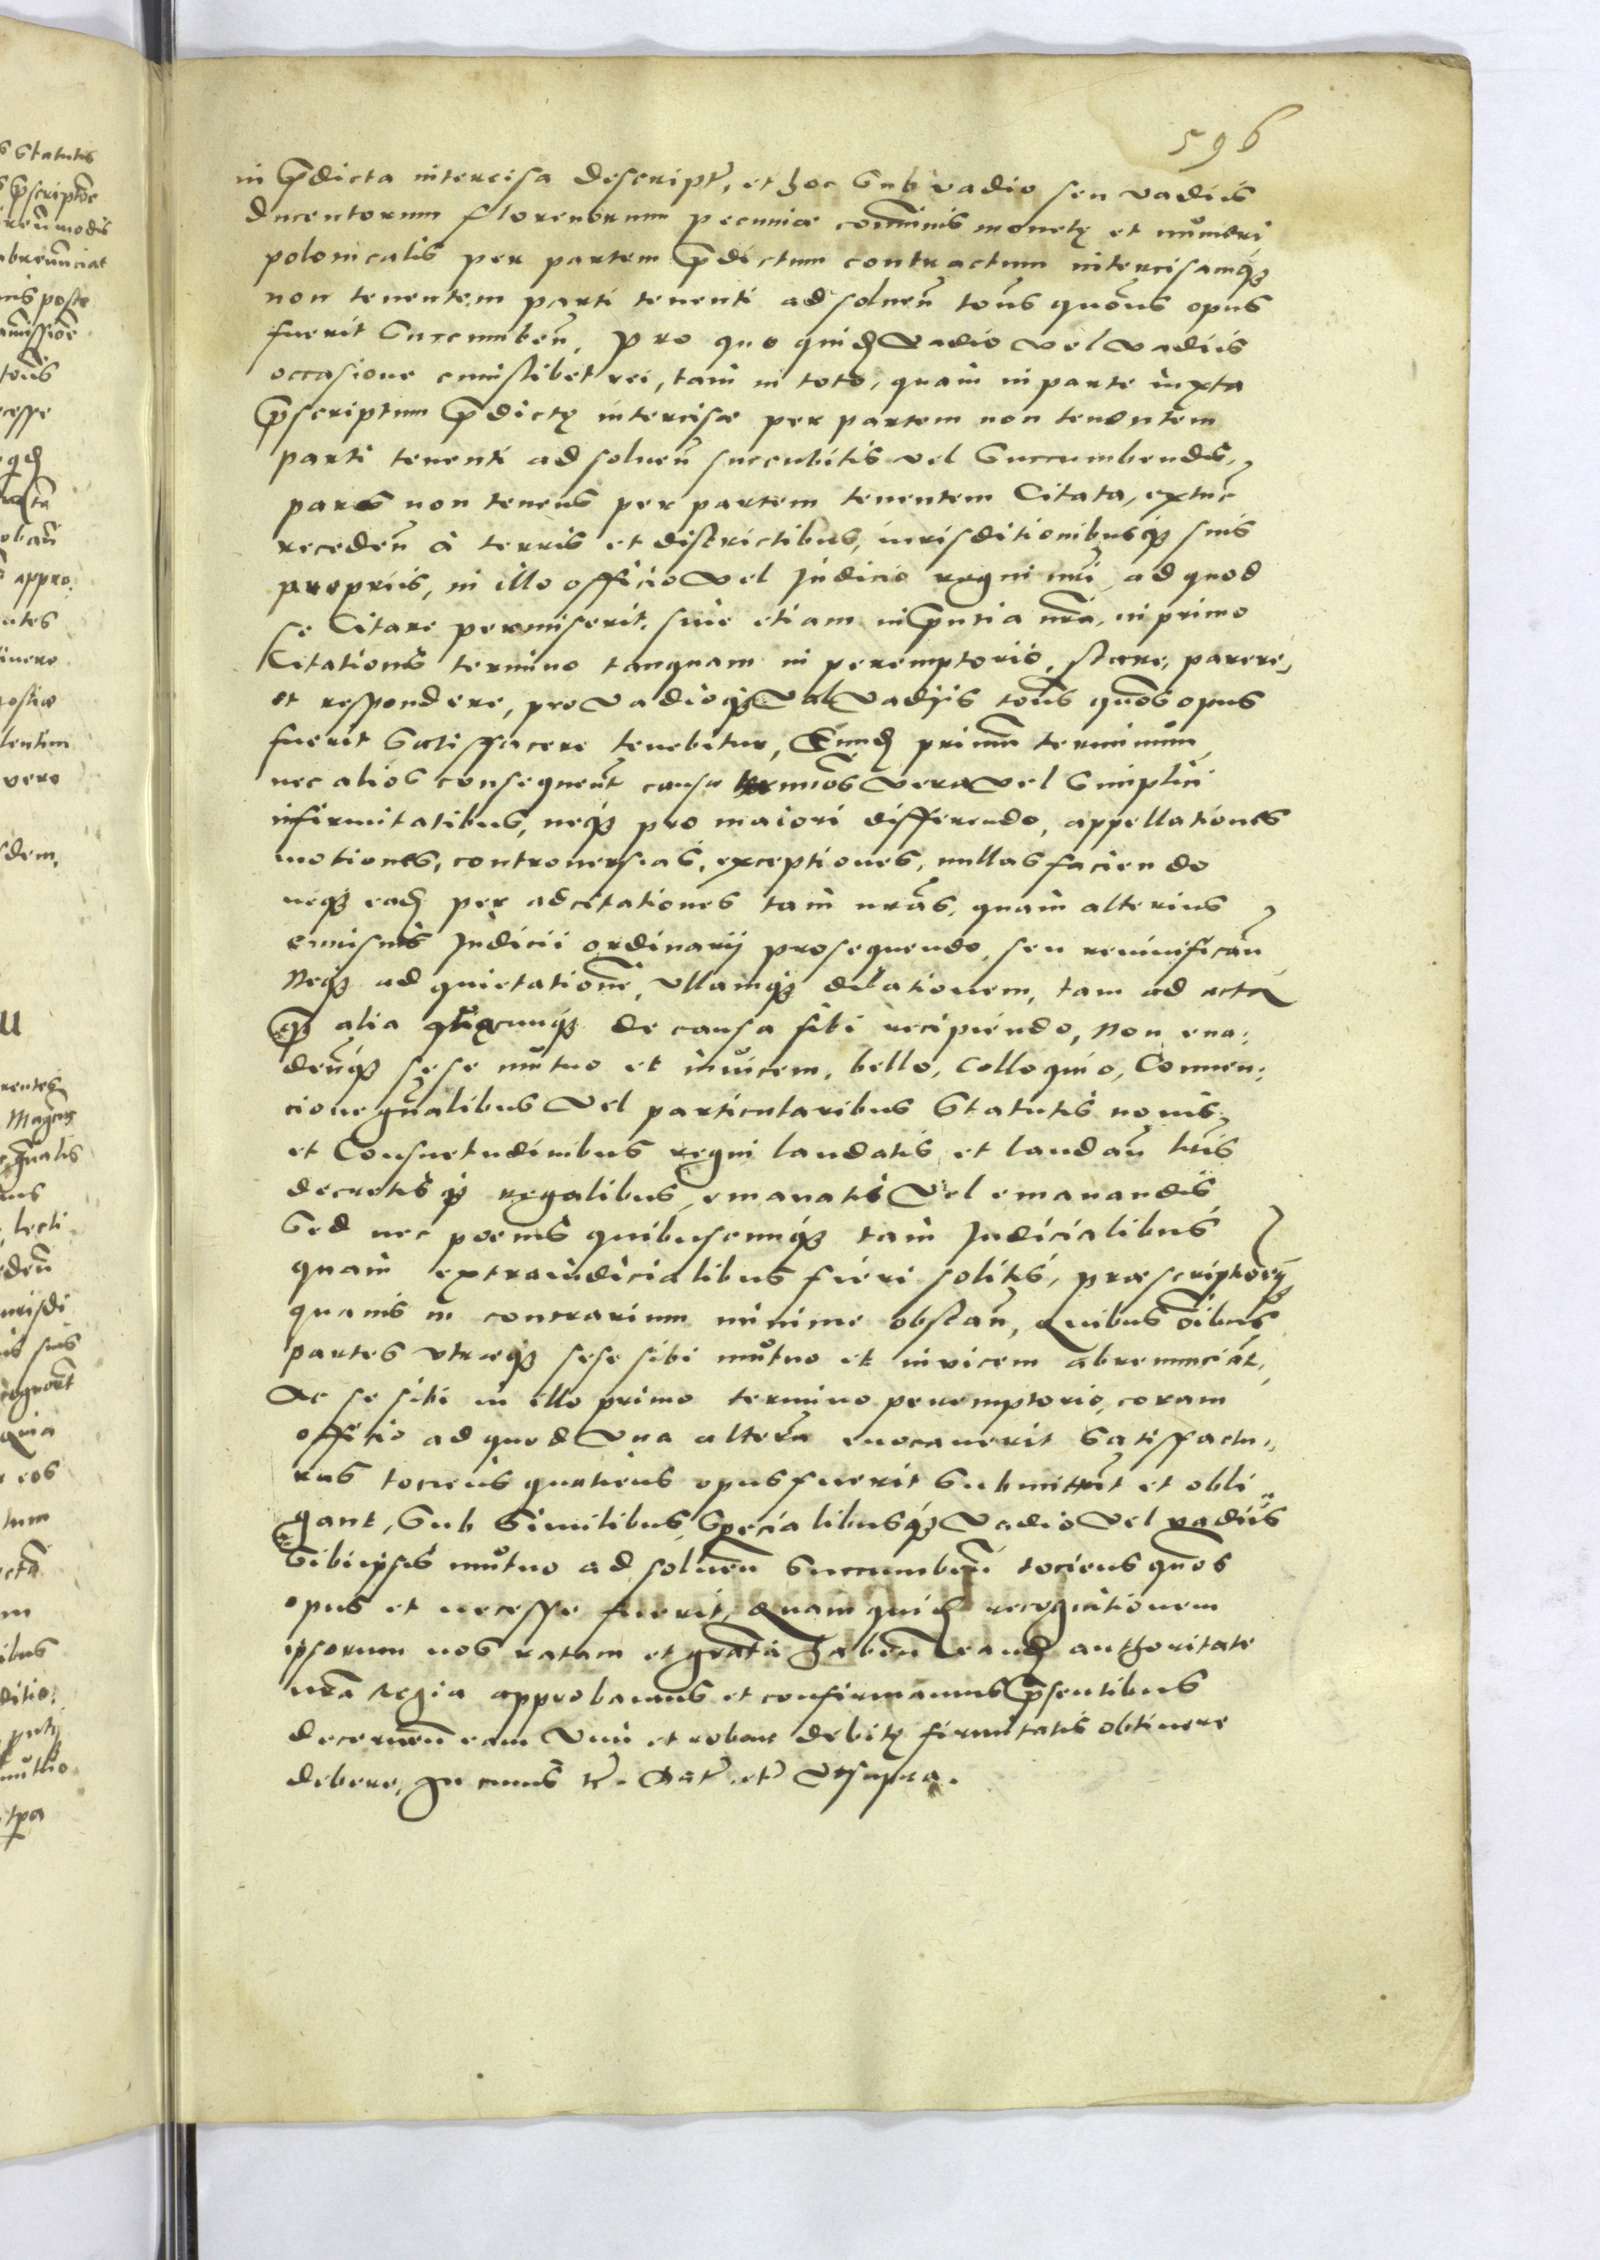 596
in p̄dicta intercisa descript̄, et hoc sub vadio seu vadiis
ducentorum florenorum pecuniæ com̄unis monetę et numeri
polonicalis per partem p̄dictum contractum intercisamq₃
non tenentem parti tenenti ad soluen̄ toc̄ns quoc̄ns opus
fuerit succumben̄, pro quo quid̄ vadio vel vadiis
occasione cuiuslibet rei, tam in toto, quam in parte iuxta
p̄scriptum p̄dictę intercisæ per partem non tenentem
parti tenenti ad soluen̄ succubitis vel succumbendis,
pars non tenens per partem tenentem Citata, extun̄c
receden̄ à terris et districtibus, iurisditionibusq₃ suis
propriis, in illo officio vel Judicio regni nr̄i, ad quod
se Citare permiserit, siue etiam in p̄ntia nr̄a, in primo
Citationis termino tanquam in peremptorio, stare, parere,
et respondere, pro vadioq₃ vel vadijs tōns quōns opus
fuerit satisfacere tenebitur, Eund̄ primum terminum
nec alios consequen̄t causa terminos vera vel simplici
infirmitatibus, neq₃ pro maiori differendo, appellationes
motiones, controuersias, exceptiones, nullas faciendo
neq₃ ead̄ per adcitationes tam nr̄as, quam alterius
cuiusuis Judicii ordinarij prosequendo, seu reuiuifican̄
Neq₃ ad quietationē, vllamq₃ dilationem, tam ad acta
q̄ alia quæcunq₃ de causa sibi recipiendo, Non eua:
den̄q₃ sese mutuo et inuicem, bello, Colloquio, Conuen:
cione gn̄alibus vel particularibus Statutis nouis,
et Consuetudinibus regni laudatis et laudan̄ lr̄is
decretisq₃ regalibus, emanatis vel emanandis
Sed nec poenis quibuscunq₃ tam Judicialibus
quam extraiudicialibus fieri solitis, præscriptorū
quauis in contrarium minime obstan̄, Quibus oībus
partes vtræq₃ sese sibi mutuo et inuicem abrenunciāt,
Ac se sibi in illo primo termino peremptorio, coram
officio ad quod vna alterā euocauerit satisfactu:
rus tociens quotiens opus fuerit submittūt et obli
gant, Sub similibus, Specialibusq₃ vadio vel vadiis
Sibiipsis mutuo ad soluen̄ succumben̄ tociens quōns
opus et necesse fuerit, Quam quid̄ recognitionem
ipsorum nos ratam et grātā haben̄ eand̄ authoritate
nr̄a regia approbamus et confirmamus p̄sentibus
decernen̄ eam vim et robur debitę firmitatis obtinere
debere, In cuius rē. Dat̄ et̄ vt supra.